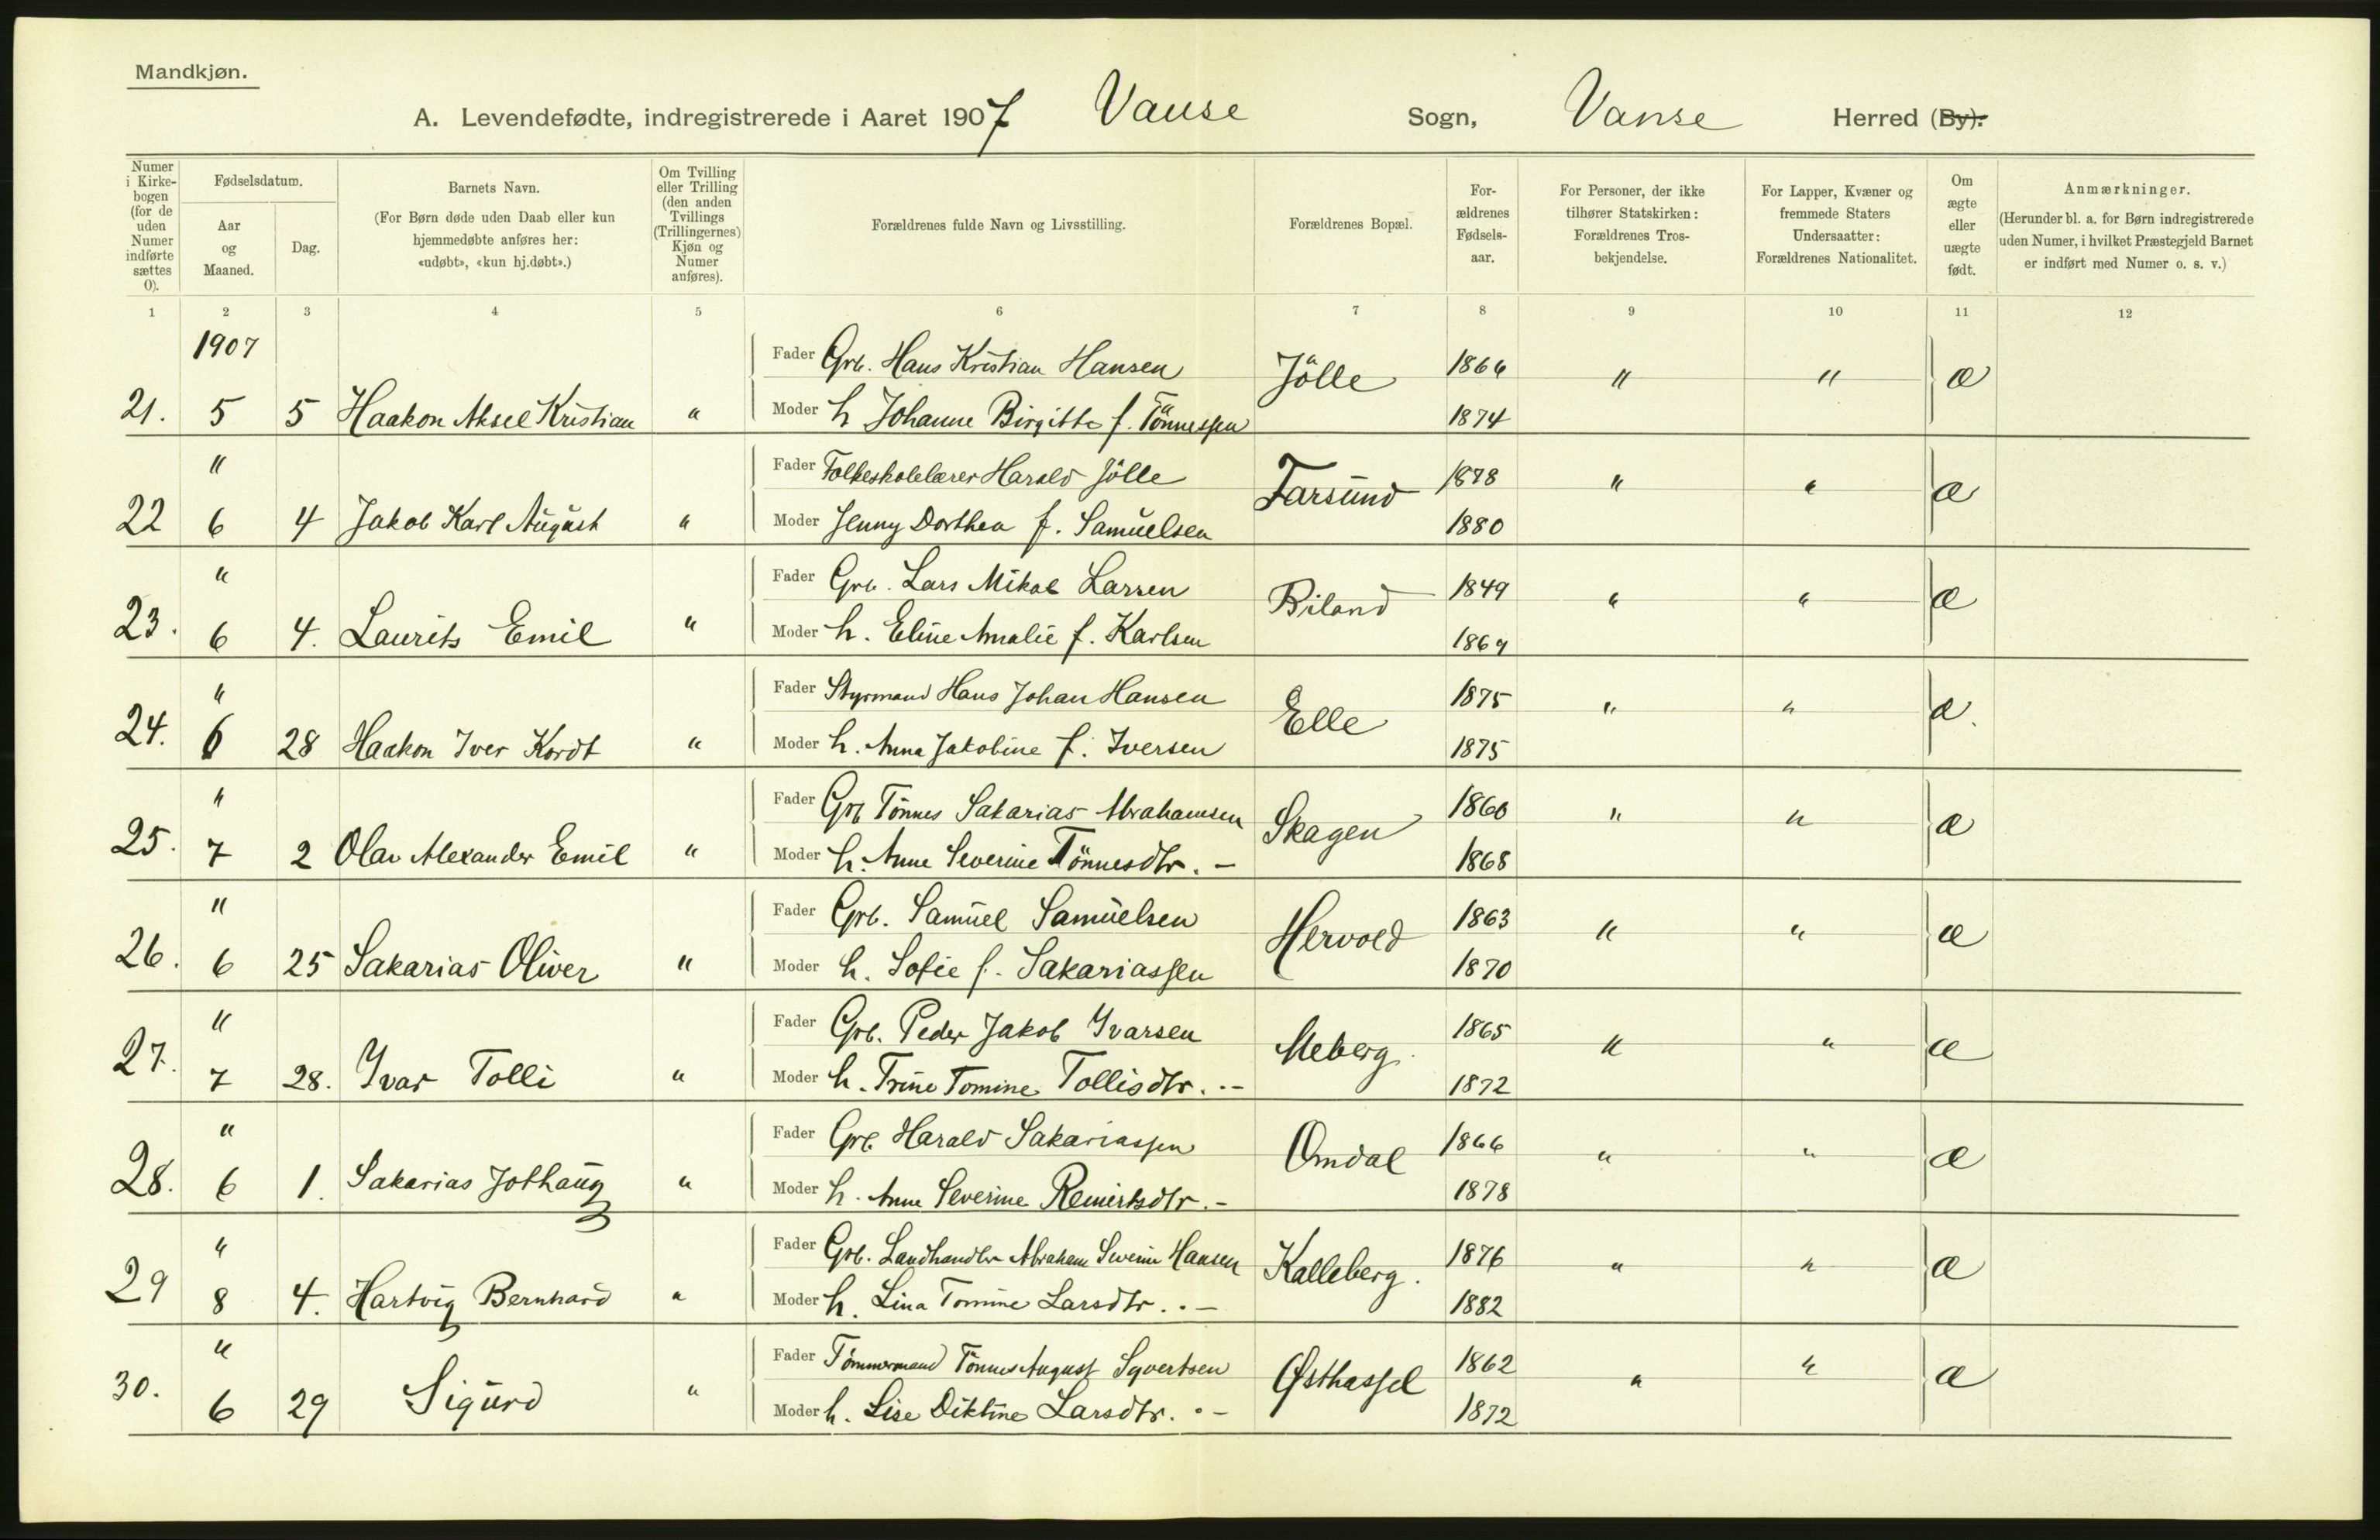 Mandkjøn.
A. Levendefødte, indregistrerede i Aaret 1907 Vanse Sogn, Vanse Herred (By).
Numer i Kirkebogen (for de uden Numer indførte sættes 0).
Fødselsdatum.
Aar og Maaned.
Dag.
Barnets Navn.
(For Børn døde uden Daab eller kun hjemmedøbte anføres her: «udøbt», «kun hj.døbt».)
Om Tvilling eller Trilling (den anden Tvillings (Trillingernes) Kjøn og Numer anføres).
Forældrenes fulde Navn og Livsstilling.
Forældrenes Bopæl.
Forældrenes Fødselsaar.
For Personer, der ikke tilhører Statskirken: Forældrenes Trosbekjendelse.
For Lapper, Kvæner og fremmede Staters Undersaatter: Forældrenes Nationalitet.
Om ægte eller uægte født.
Anmærkninger.
(Herunder bl. a. for Børn indregistrerede uden Numer, i hvilket Præstegjeld Barnet er indført med Numer o. s. v.)
1 2 3 4 5 6 7 8 9 10 11 12
1907
Fader Grb. Hans Kristian Hansen Jölle 1866 " " æ
21. 5 5 Haakon Aksel Kristian " Moder h Johanne Birgitte f. Tönnessen 1874
" Fader Folkeskolelærer Harald Jölle Farsund 1878 " " æ
22 6 4 Jakob Karl August " Moder Jenny Dorthea f. Samuelsen 1880
" Fader Grb. Lars Mikal Larsen Biland 1849 " " æ
23. 6 4. Laurits Emil " Moder h. Eline Amalie f. Karlsen 1869
" Fader Styrmand Hans Johan Hansen Elle 1875 " " æ.
24. 6 28 Haakon Iver Kordt " Moder h. Anna Jakobine f. Iversen 1875
" Fader Grb Tönnes Sakarias Abrahamsen Skagen 1860 " " æ
25. 7 2 Olav Alexander Emil " Moder h. Anne Severine Tönnesdtr. -
1868
" Fader Grb. Samuel Samuelsen Hervold 1863 " " æ
26. 6 25 Sakarias Oliver " Moder h. Sofie f. Sakariassen 1870
" Fader Grb. Peder Jakob Ivarsen Meberg 1865 " " æ
27. 7 28. Ivar Tolli " Moder h. Trine Tomine Tollisdtr. - 1872
" Fader Grb. Harald Sakariassen Omdal 1866 " " æ
28. 6 1. Sakarias Jothaug " Moder h. Anne Severine Reinertsdtr. - 1878
" Fader Grb. Landhandler Abraham Severin Hansen Kalleberg. 1876 " " æ
29 8 4. Hartvig Bernhard " Moder h. Lina Tomine Larsdtr. - 1882
" Fader Tömmermand Tönnes August Syvertsen Østhassel 1862 " " æ
30. 6 29 Sigurd " Moder h. Lise Diktine Larsdtr. - 1872